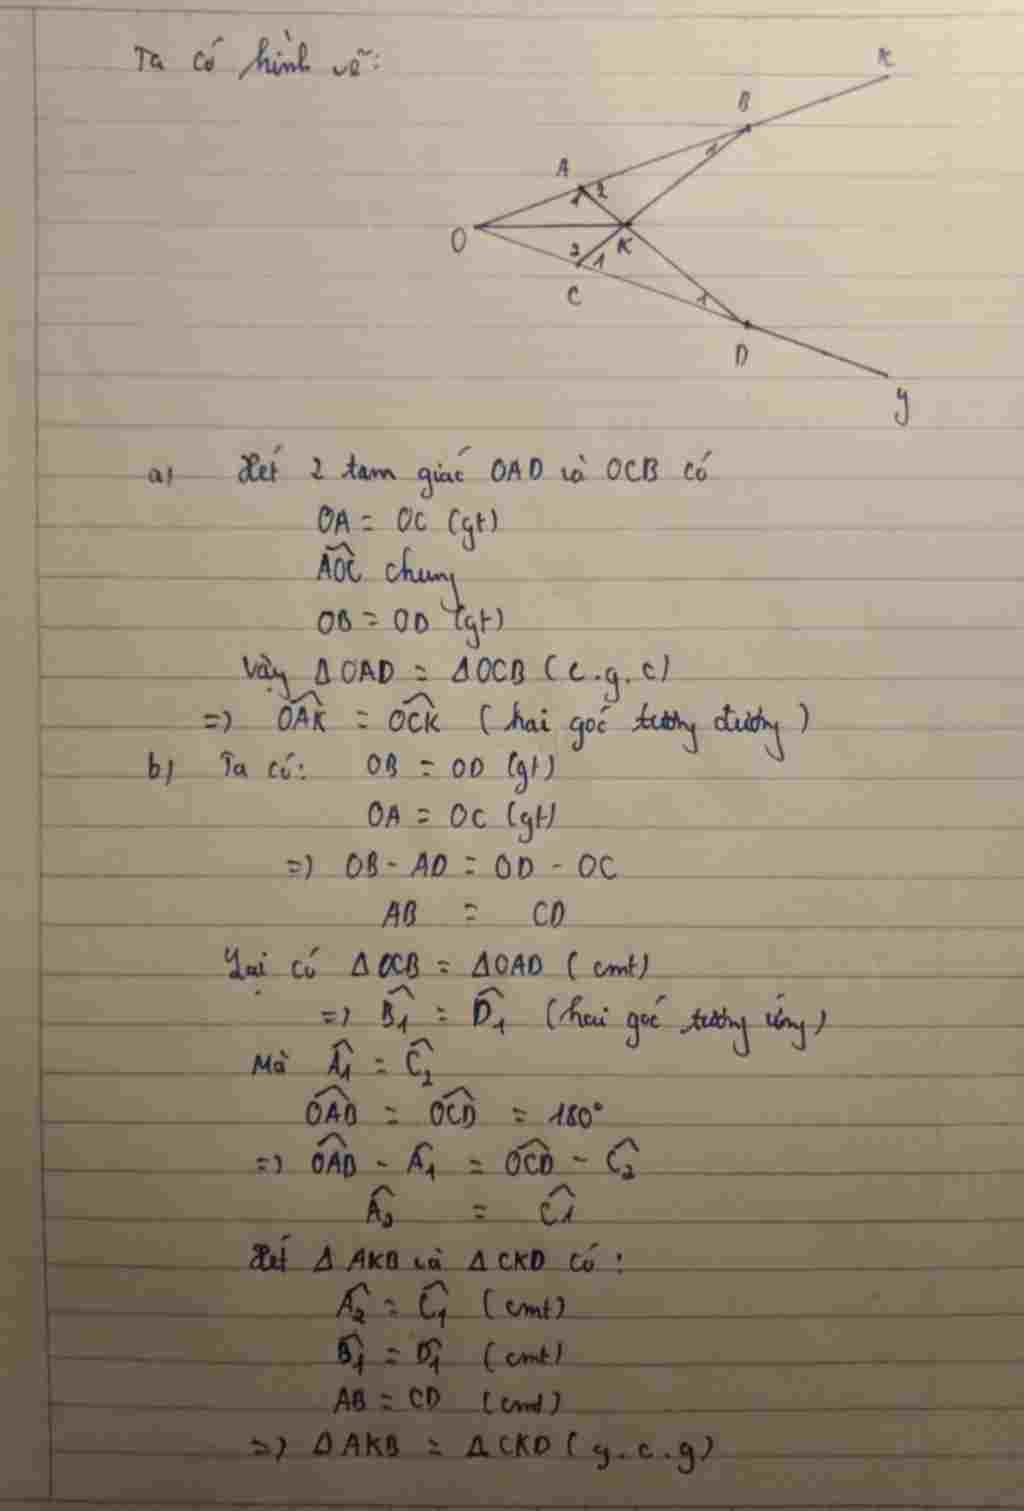 Ta có hình vẽ:
x
B
1
A
2
1
O
K
2
1
C
1
D
y
a) Xét 2 tam giác OAD và OCB có
OA = OC (gt)
AOC chung
OB = OD (gt)
Vậy ΔOAD = ΔOCB (c.g.c)
=) OAK = OCK (hai góc tương đương)
b) Ta có: OB = OD (gt)
OA = OC (gt)
=) OB - AO = OD - OC
AB = CD
Lại có ΔOCB = ΔOAD (cmt)
=) B1 = D1 (hai góc tương ứng)
Mà A1 = C2
OAB = OCD = 180°
=) OAB - A1 = OCD - C2
A2 = C1
Xét Δ AKB và Δ CKD có:
A2 = C1 (cmt)
B1 = D1 (cmt)
AB = CD (cmt)
=) ΔAKB = ΔCKD (g.c.g)